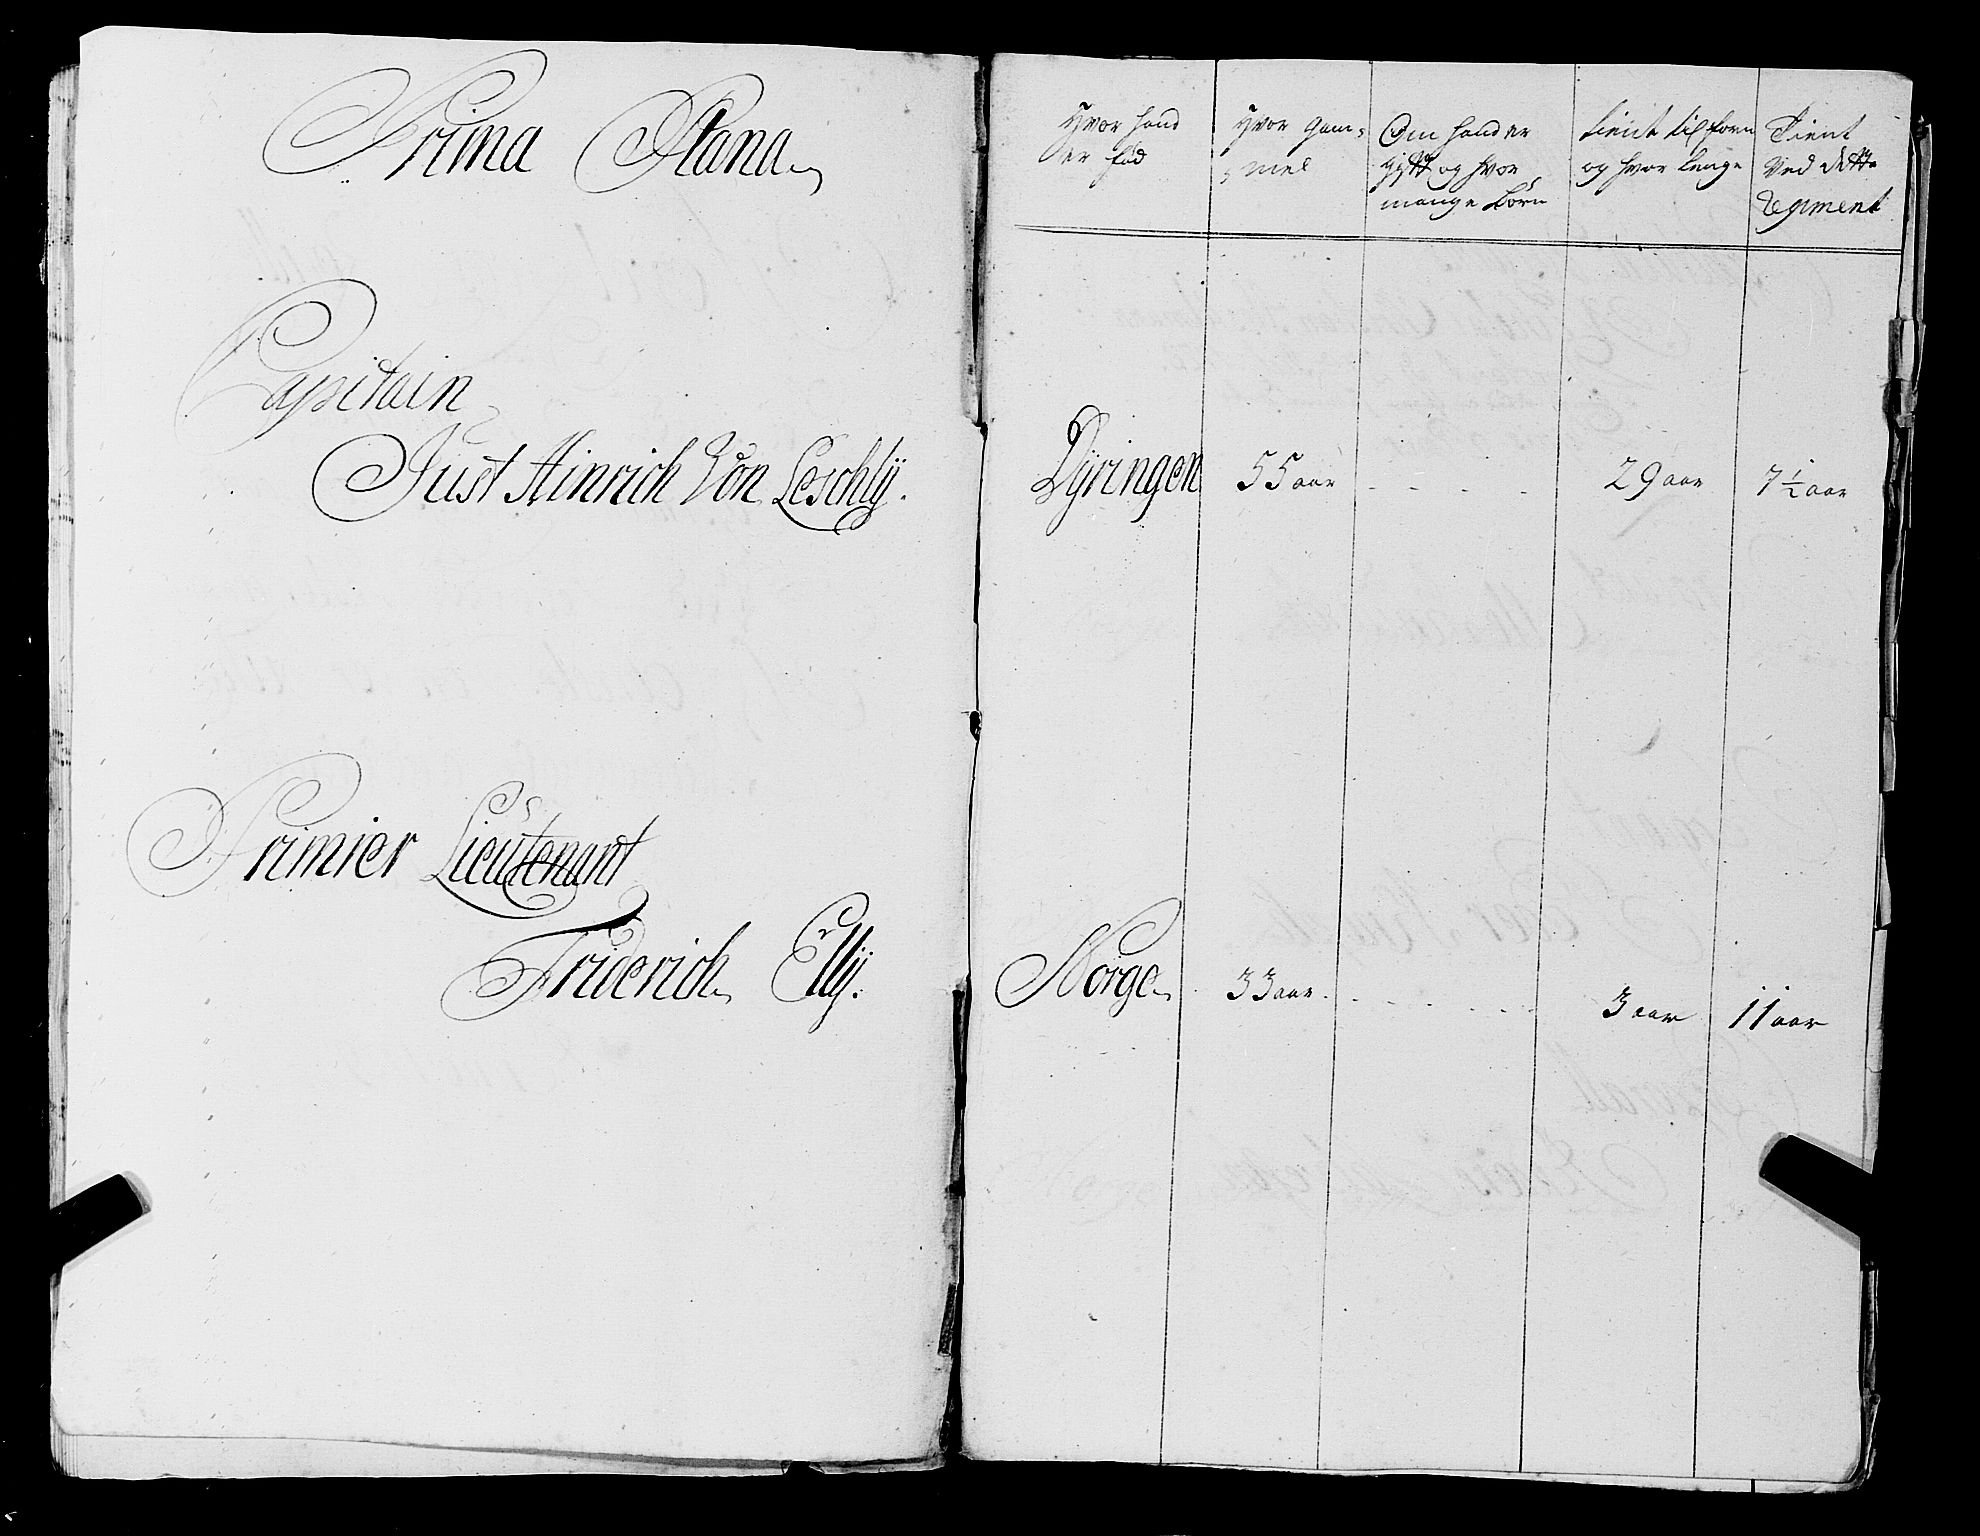 Prima Plana
Capitain
Just Hinrich Von Leschlÿ.
Primier Lieutenant
Friderich Ellÿ.
Hvor hand er fød
Hvor gam=
=mel
Om hand er
gift og hvor
mange börn
tient til forn
og hvor lenge
Tient
Ved dette
Regiment
Dÿringen 55 aar - - - - 29 aar 7 1/2 aar
Norge 33 aar. - - - - - 3 aar 11 aar